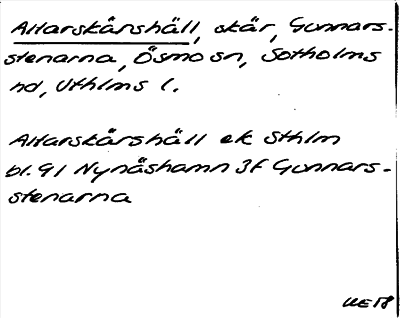 Altarskårshäll, skär, Gunnars-
stenarna, Ösmo sn, Sotholms
hd, Sthlms l.
Altarskårshäll ek Sthlm
bl. 91 Nynäshamn 3f Gunnars-
stenarna